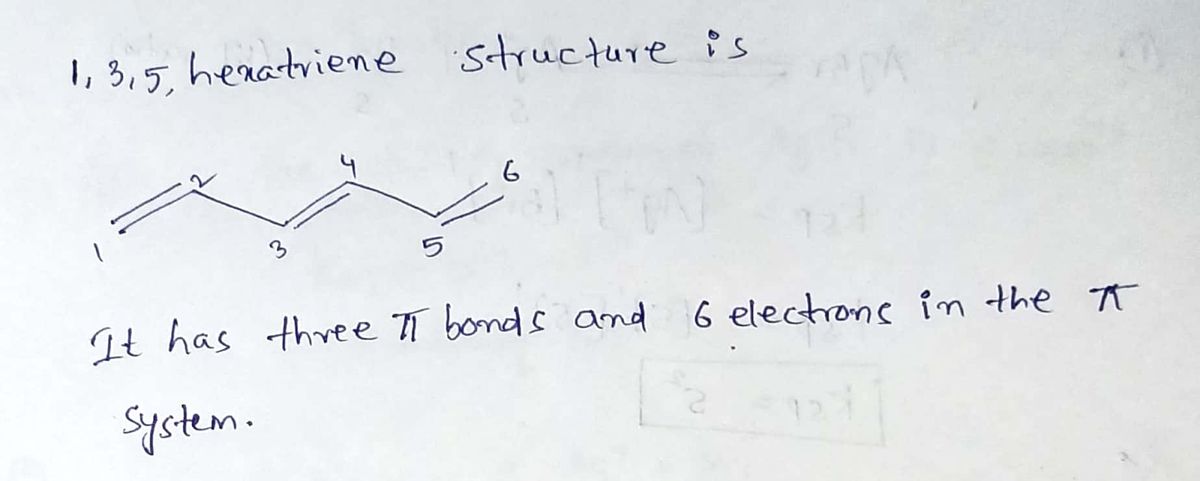 1, 3, 5, hexatriene structure is
4 6
2
1 3 5
It has three π bonds and 6 electrons in the π
system.